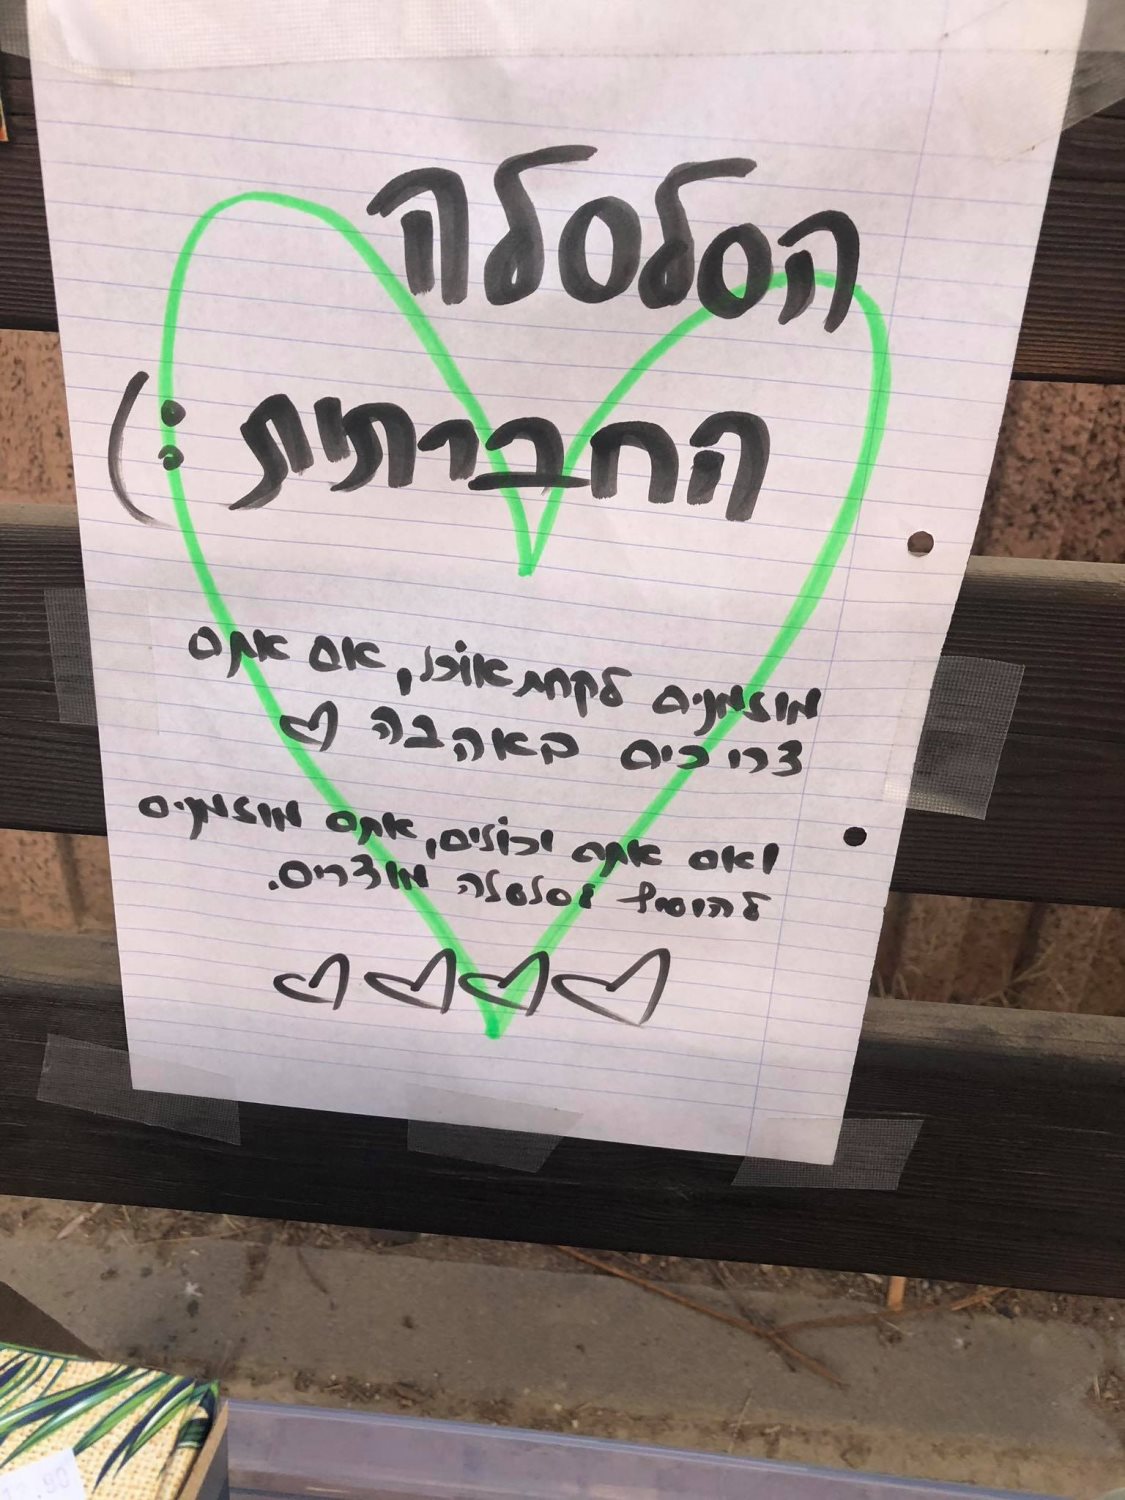 הסלסלה
החברתית :)
מוזמנים לקחת אוכל, אם אתם
צריכים באהבה ♡
ואם אתם יכולים, אתם מוזמנים
להוסיף לסלסלה מוצרים.
♡♡♡♡